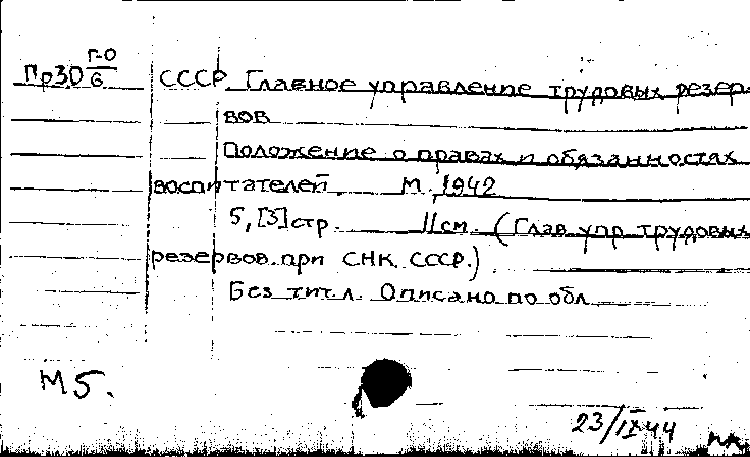 Пр30 Г-0/6 СССР. Главное управление трудовых резер-
вов
Положение о правах и обязанностях
воспитателей. М., 1942
5, [3] стр. 11 см. (Глав. упр. трудовых
резервов при СНК СССР.)
Без тит. л. Описано по обл.
М5.
23/IX 44